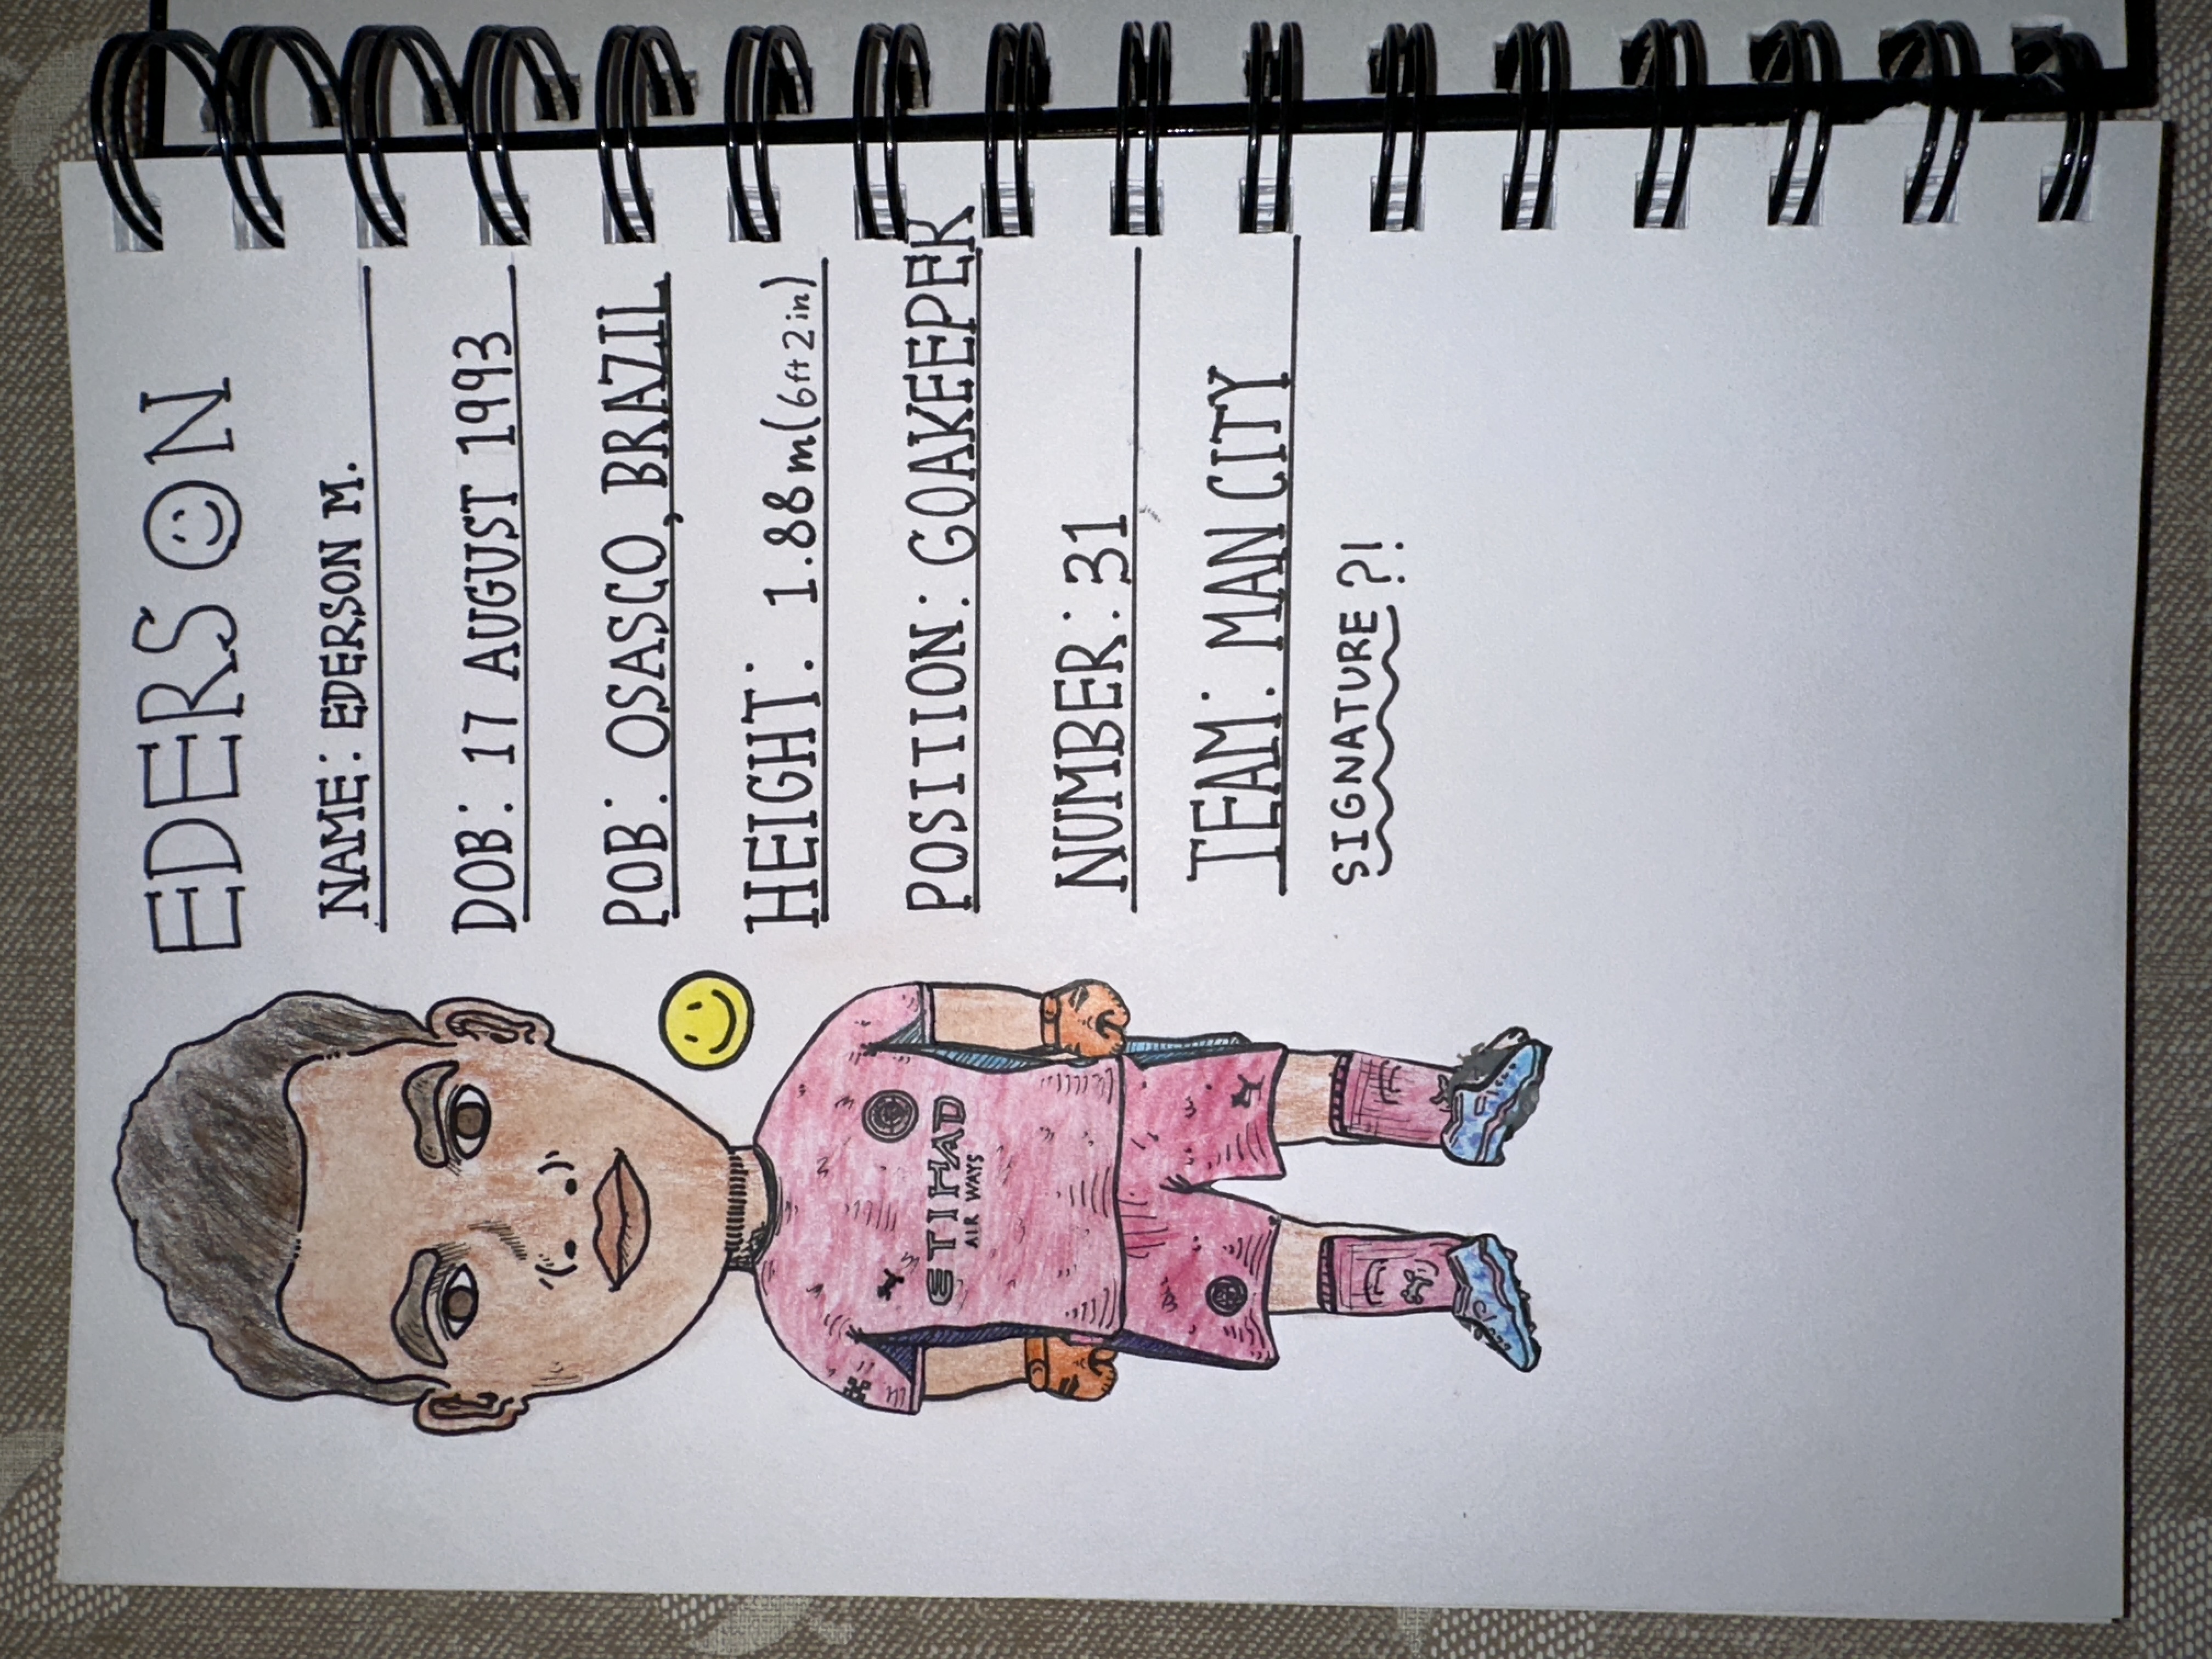 EDERSON
NAME: EDERSON M.
DOB: 17 AUGUST 1993
POB: OSASCO, BRAZIL
HEIGHT: 1.88m (6ft 2in)
POSITION: GOAKEEPER
NUMBER: 31
TEAM: MAN CITY
SIGNATURE?!
ETIHAD
AIRWAYS